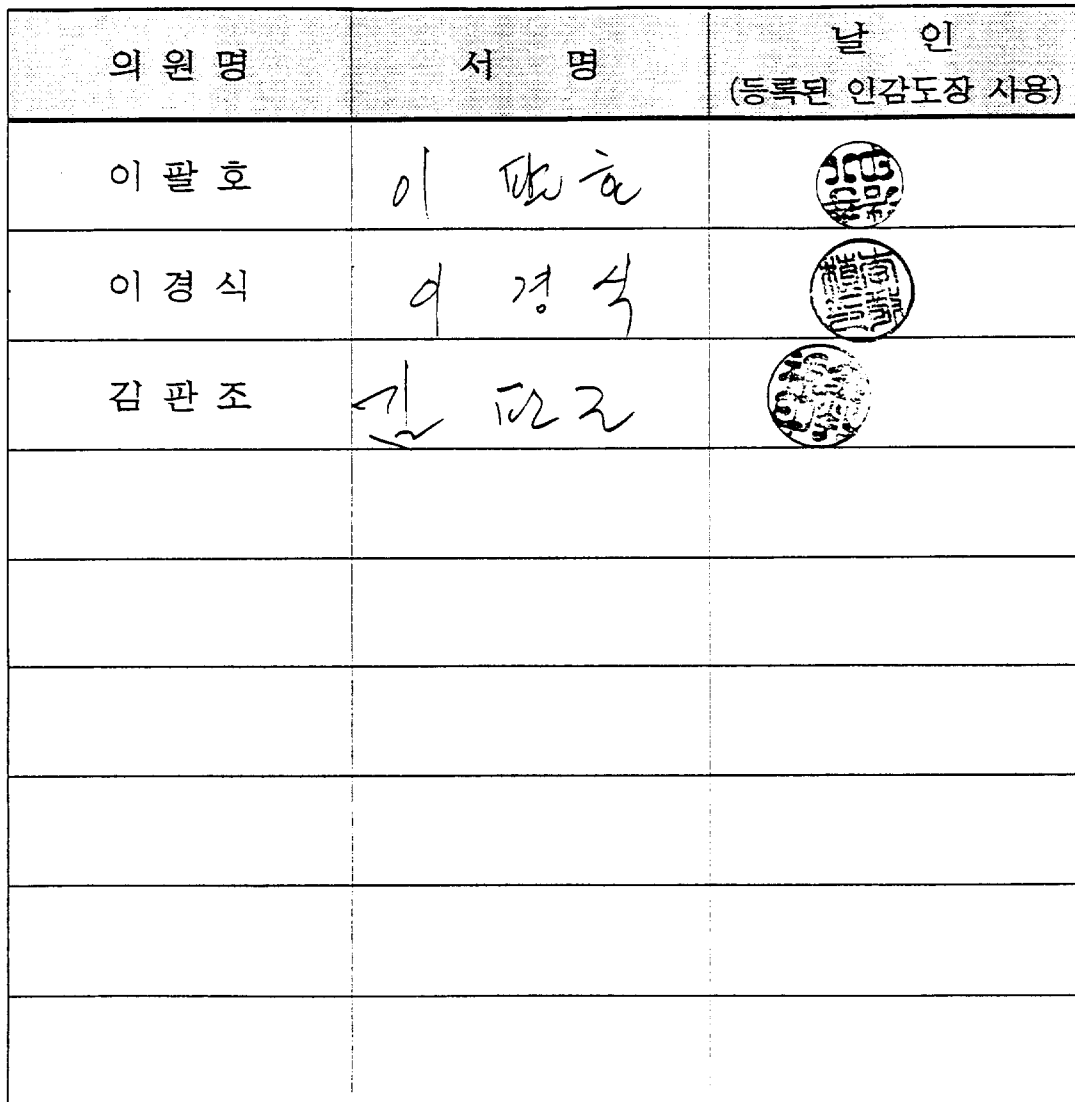 의 원 명 서 명 날 인
(등록된 인감도장 사용)
이 팔 호 이 팔 호
이 경 식 이 경 식
김 판 조 김 판 조